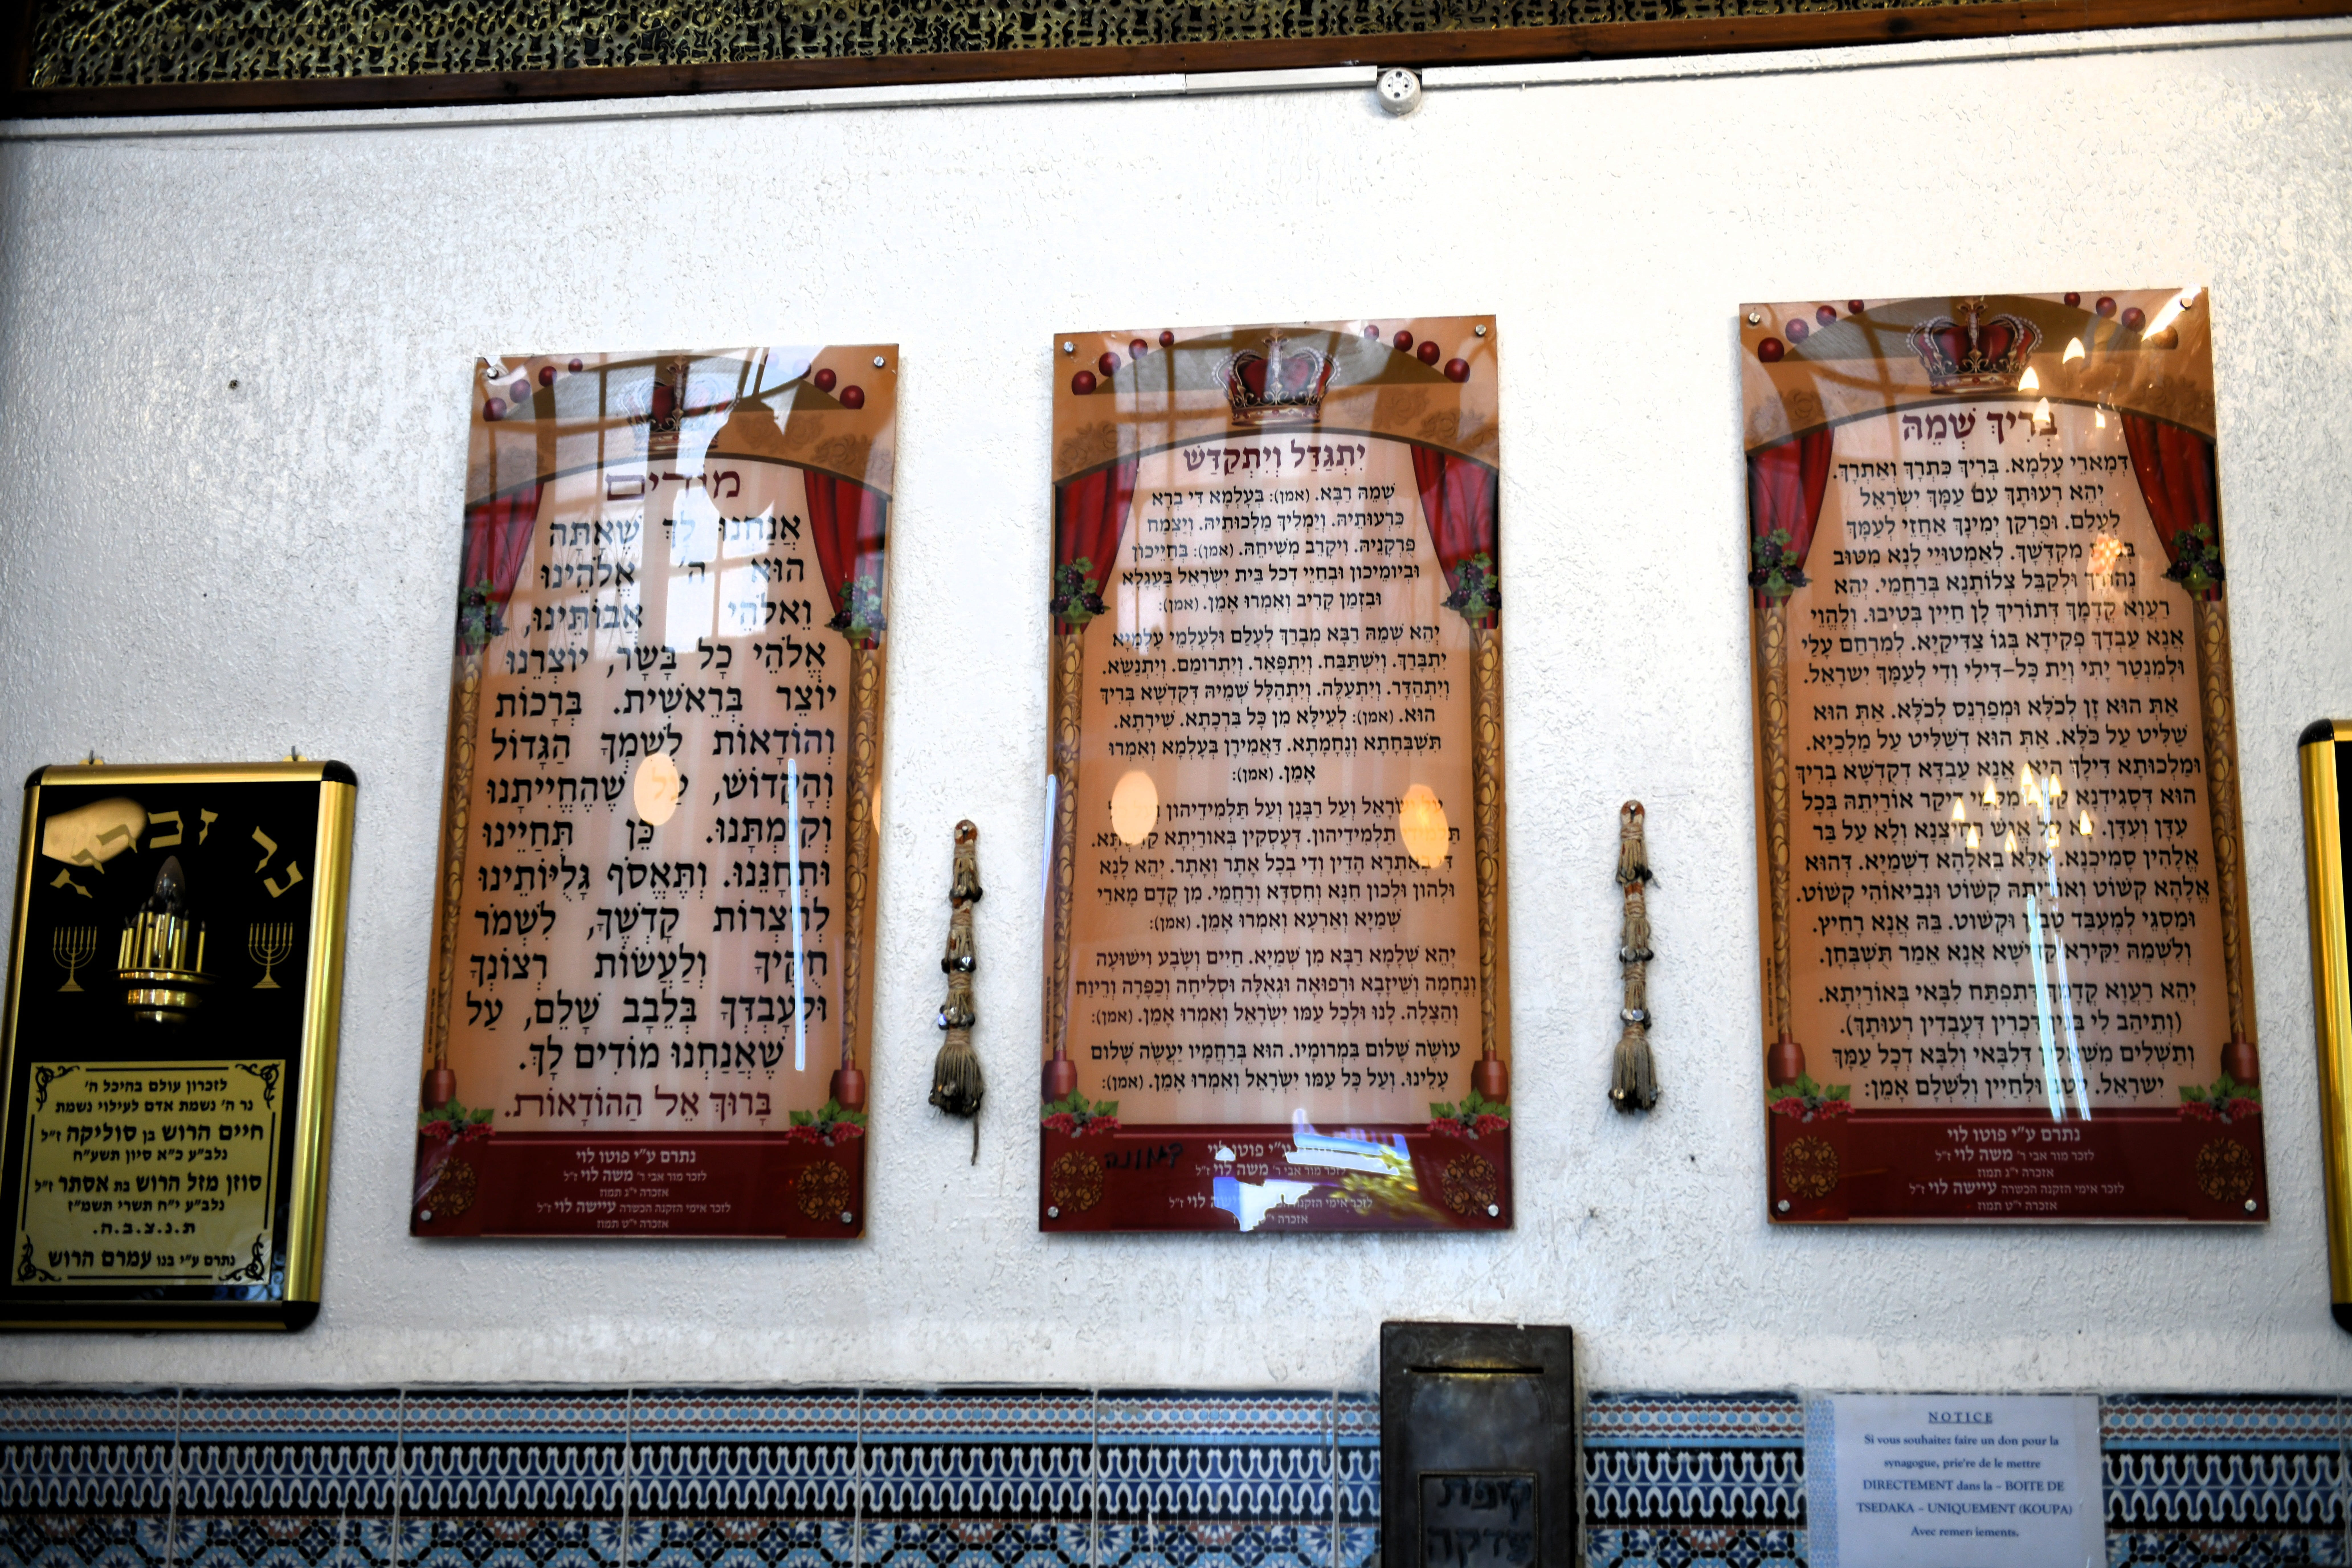 נר זכרון
לזכרון עולם בהיכל ה׳
נר ה׳ נשמת אדם לעילוי נשמת
חיים הרוש בן סוליקה ז״ל
נלב״ע כ״א סיון תשע״ח
סוזן מזל הרוש בת אסתר ז״ל
נלב״ע י״ח תשרי תשמ״ז
ת.נ.צ.ב.ה.
נתרם ע״י בנו עמרם הרוש
מודים
אֲנַחְנוּ לָךְ שֶׁאַתָּה
הוּא ה׳ אֱלֹהֵינוּ
וֵאלֹהֵי אֲבוֹתֵינוּ,
אֱלֹהֵי כָל בָּשָׂר, יוֹצְרֵנוּ
יוֹצֵר בְּרֵאשִׁית. בְּרָכוֹת
וְהוֹדָאוֹת לְשִׁמְךָ הַגָּדוֹל
וְהַקָּדוֹשׁ, עַל שֶׁהֶחֱיִיתָנוּ
וְקִיַּמְתָּנוּ. כֵּן תְּחַיֵּינוּ
וּתְחָנֵּנוּ. וְתֶאֱסֹף גָּלֻיּוֹתֵינוּ
לְחַצְרוֹת קָדְשֶׁךָ, לִשְׁמֹר
חֻקֶּיךָ וְלַעֲשׂוֹת רְצוֹנְךָ
וּלְעָבְדְּךָ בְּלֵבָב שָׁלֵם, עַל
שֶׁאֲנַחְנוּ מוֹדִים לָךְ.
בָּרוּךְ אֵל הַהוֹדָאוֹת.
נתרם ע״י פוטו לוי
לזכר מור אבי ר׳ משה לוי ז״ל
אזכרה י״ג תמוז
לזכר אימי הזקנה הכשרה עיישה לוי ז״ל
אזכרה י״ט תמוז
יִתְגַּדַּל וְיִתְקַדַּשׁ
שְׁמֵהּ רַבָּא. (אמן): בְּעָלְמָא דִּי בְרָא
כִּרְעוּתֵיהּ. וְיַמְלִיךְ מַלְכוּתֵיהּ. וְיַצְמַח
פֻּרְקָנֵיהּ. וִיקָרֵב מְשִׁיחֵהּ. (אמן): בְּחַיֵּיכוֹן
וּבְיוֹמֵיכוֹן וּבְחַיֵּי דְכָל בֵּית יִשְׂרָאֵל בַּעֲגָלָא
וּבִזְמַן קָרִיב וְאִמְרוּ אָמֵן. (אמן):
יְהֵא שְׁמֵהּ רַבָּא מְבָרַךְ לְעָלַם וּלְעָלְמֵי עָלְמַיָּא
יִתְבָּרַךְ. וְיִשְׁתַּבַּח. וְיִתְפָּאַר. וְיִתְרוֹמַם. וְיִתְנַשֵּׂא.
וְיִתְהַדָּר. וְיִתְעַלֶּה. וְיִתְהַלָּל שְׁמֵיהּ דְּקֻדְשָׁא בְּרִיךְ
הוּא. (אמן): לְעֵילָּא מִן כָּל בִּרְכָתָא. שִׁירָתָא.
תִּשְׁבְּחָתָא וְנֶחָמָתָא. דַּאֲמִירָן בְּעָלְמָא וְאִמְרוּ
אָמֵן. (אמן):
עַל יִשְׂרָאֵל וְעַל רַבָּנָן וְעַל תַּלְמִידֵיהוֹן
תַלְמִידֵיהוֹן. דְּעָסְקִין בְּאוֹרַיְתָא
בְאַתְרָא הָדֵין וְדִי בְכָל אֲתַר וַאֲתַר. יְהֵא לָנָא
וּלְהוֹן וּלְכוֹן חִנָּא וְחִסְדָּא וְרַחֲמֵי. מִן קֳדָם מָארֵי
שְׁמַיָּא וְאַרְעָא וְאִמְרוּ אָמֵן. (אמן):
יְהֵא שְׁלָמָא רַבָּא מִן שְׁמַיָּא. חַיִּים וְשָׂבָע וִישׁוּעָה
וְנֶחָמָה וְשֵׁיזָבָא וּרְפוּאָה וּגְאֻלָּה וּסְלִיחָה וְכַפָּרָה וְרֵיוַח
וְהַצָּלָה. לָנוּ וּלְכָל עַמּוֹ יִשְׂרָאֵל וְאִמְרוּ אָמֵן. (אמן):
עוֹשֶׂה שָׁלוֹם בִּמְרוֹמָיו. הוּא בְּרַחֲמָיו יַעֲשֶׂה שָׁלוֹם
עָלֵינוּ. וְעַל כָּל עַמּוֹ יִשְׂרָאֵל וְאִמְרוּ אָמֵן. (אמן):
ע״י פוטו לוי
לזכר מור אבי ר׳ משה לוי ז״ל
לזכר אימי הזקנה לוי ז״ל
אזכרה
בְּרִיךְ שְׁמֵהּ
דְּמָארֵי עָלְמָא. בְּרִיךְ כִּתְרָךְ וְאַתְרָךְ.
יְהֵא רְעוּתָךְ עִם עַמָּךְ יִשְׂרָאֵל
לְעָלַם. וּפֻרְקַן יְמִינָךְ אַחֲזֵי לְעַמָּךְ
מִקְדְּשָׁךְ. לְאַמְטוּיֵי לָנָא מִטּוּב
נְהוֹרָךְ וּלְקַבֵּל צְלוֹתָנָא בְּרַחֲמֵי. יְהֵא
רַעֲוָא קֳדָמָךְ דְּתוֹרִיךְ לָן חַיִּין בְּטִיבוּ. וְלֶהֱוֵי
אֲנָא עַבְדָּךְ פְּקִידָא בְּגוֹ צַדִּיקַיָּא. לְמִרְחַם עָלַי
וּלְמִנְטַר יָתִי וְיַת כָּל-דִּילִי וְדִי לְעַמָּךְ יִשְׂרָאֵל.
אַתְּ הוּא זָן לְכֹלָּא וּמְפַרְנֵס לְכֹלָּא. אַתְּ הוּא
שַׁלִּיט עַל כֹּלָּא. אַתְּ הוּא דְּשַׁלִּיט עַל מַלְכַיָּא.
וּמַלְכוּתָא דִּילָךְ הִיא. אֲנָא עַבְדָּא דְקֻדְשָׁא בְּרִיךְ
הוּא דְּסָגִידְנָא קַמֵּהּ וּמִקַּמֵּי דִּיקַר אוֹרַיְתֵהּ בְּכָל
עִדָּן וְעִדָּן. לָא עַל אֱנָשׁ רָחִיצְנָא וְלָא עַל בַּר
אֱלָהִין סָמִיכְנָא. אֶלָּא בֶּאֱלָהָא דִשְׁמַיָּא. דְּהוּא
אֱלָהָא קְשׁוֹט וְאוֹרַיְתֵהּ קְשׁוֹט וּנְבִיאוֹהִי קְשׁוֹט.
וּמַסְגֵּי לְמֶעְבַּד טָבְוָן וּקְשׁוֹט. בֵּהּ אֲנָא רָחִיץ.
וְלִשְׁמֵהּ יַקִּירָא קַדִּישָׁא אֲנָא אֵמַר תֻּשְׁבְּחָן.
יְהֵא רַעֲוָא קֳדָמָךְ דְּתִפְתַּח לִבָּאי בְּאוֹרַיְתָא.
(וְתֵיהַב לִי בְּנִין דִּכְרִין דְּעָבְדִין רְעוּתָךְ).
וְתַשְׁלִים מִשְׁאֲלִין דְּלִבָּאי וְלִבָּא דְכָל עַמָּךְ
יִשְׂרָאֵל. לְטַב וּלְחַיִּין וְלִשְׁלָם אָמֵן:
נתרם ע״י פוטו לוי
לזכר מור אבי ר׳ משה לוי ז״ל
אזכרה י״ג תמוז
לזכר אימי הזקנה הכשרה עיישה לוי ז״ל
אזכרה י״ט תמוז
קופת
צדקה
NOTICE
Si vous souhaitez faire un don pour la
synagogue, prie're de le mettre
DIRECTEMENT dans la – BOITE DE
TSEDAKA – UNIQUEMENT (KOUPA)
Avec remerciements.